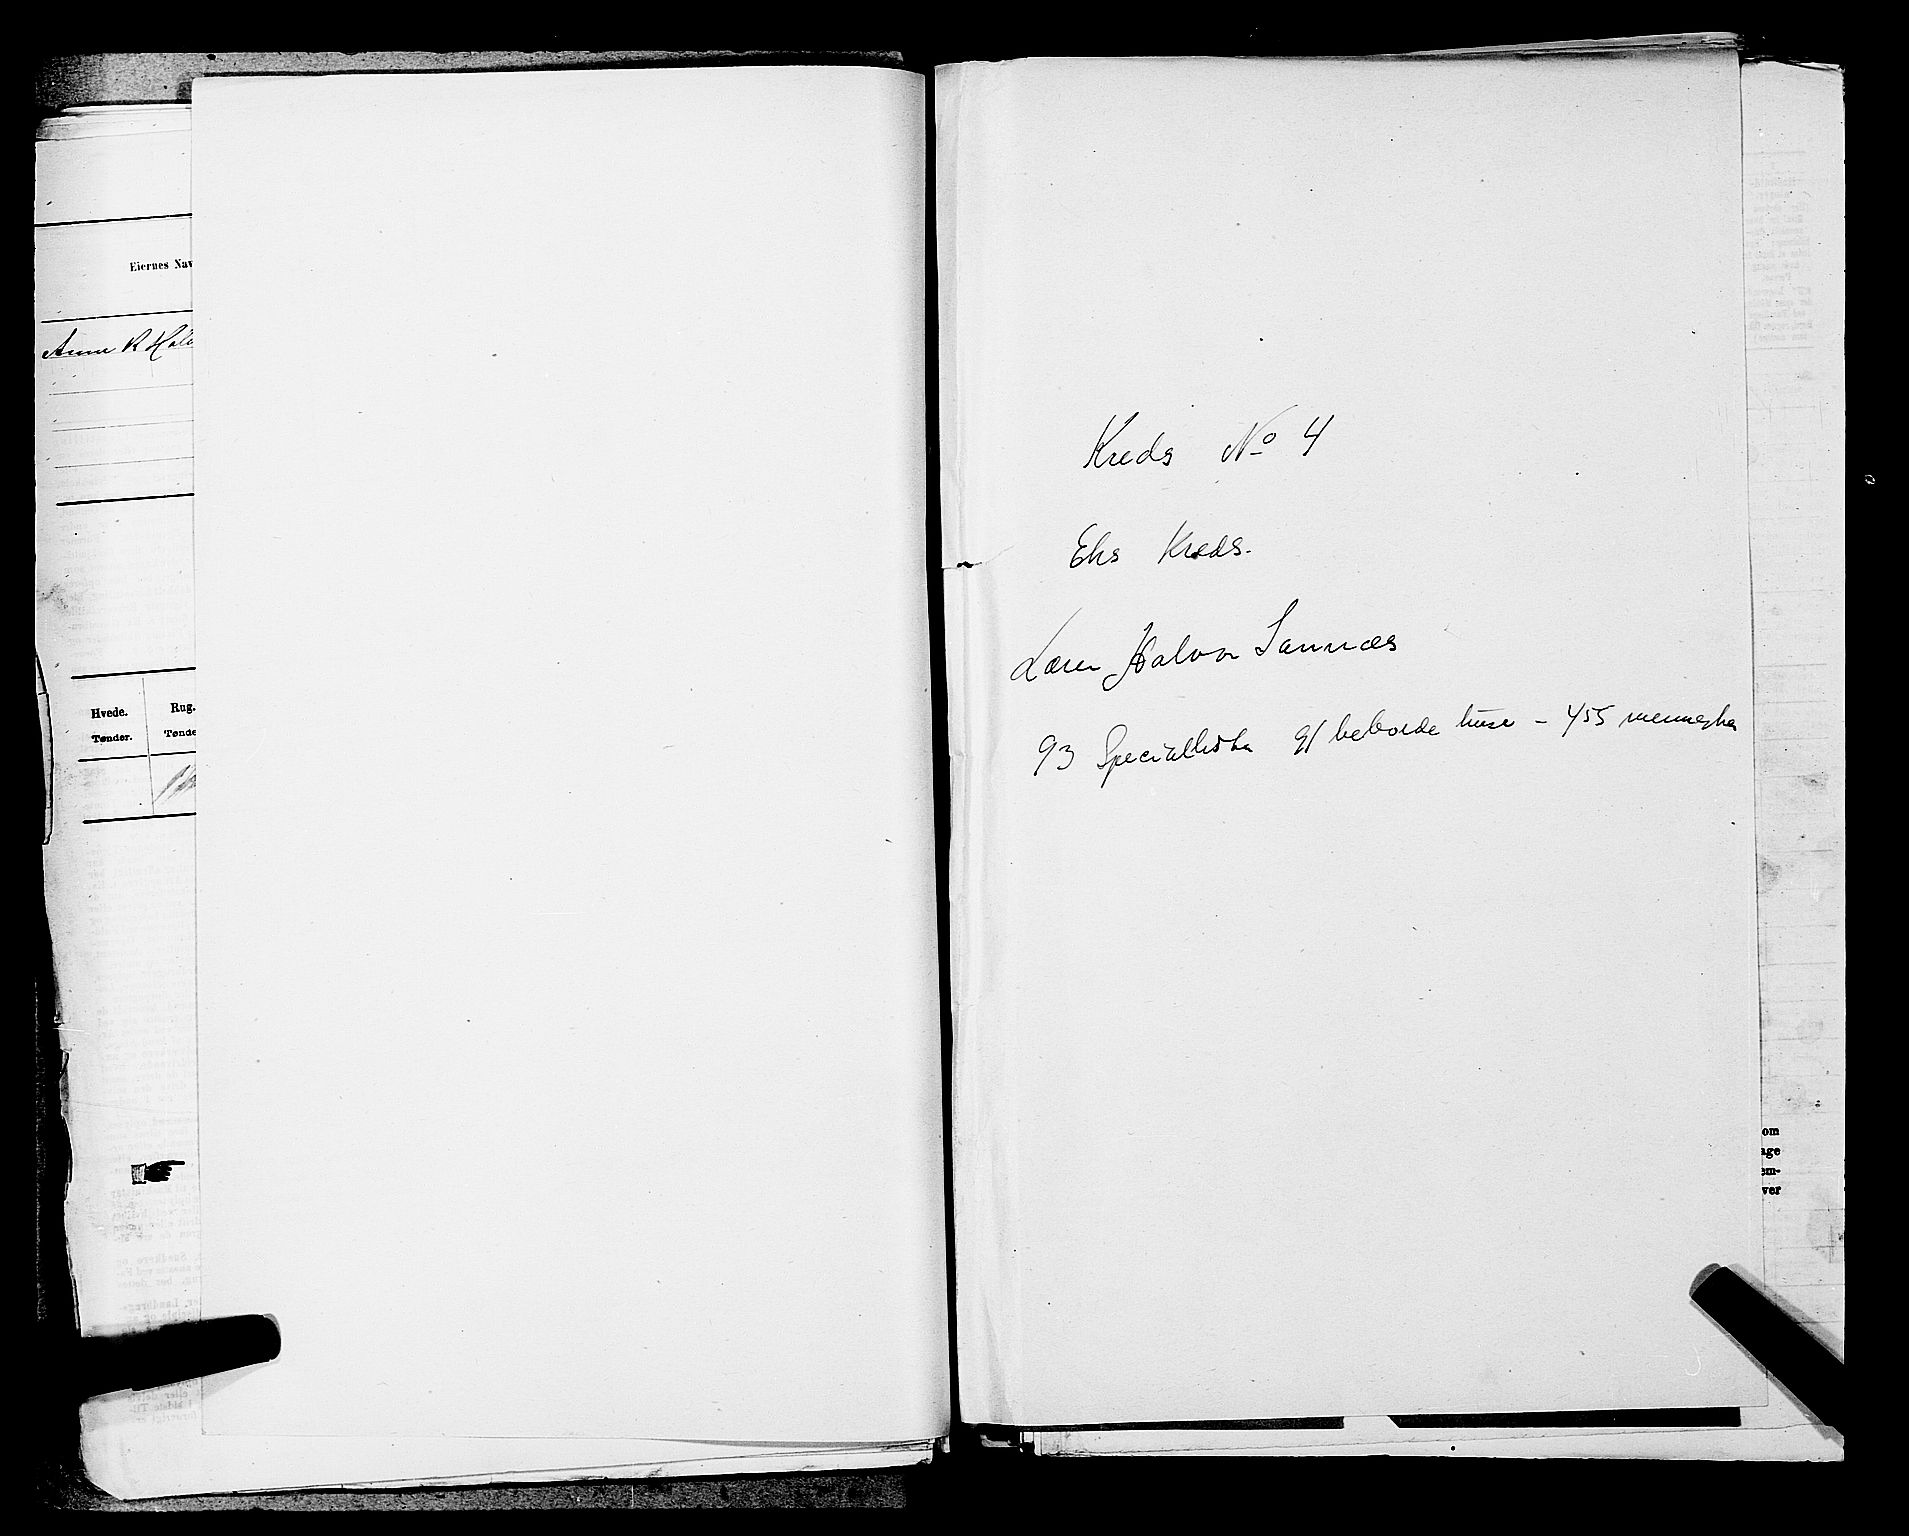 Eiernes Nav
Anne R Halv
Hvede.
Rug.
Tønder.
Tønde
Kreds No 4
Eks Kreds.
Lærer Halvor Sannæs
93 Speciallister 91 beboede huse - 455 mennesker
om
age
em-
ver